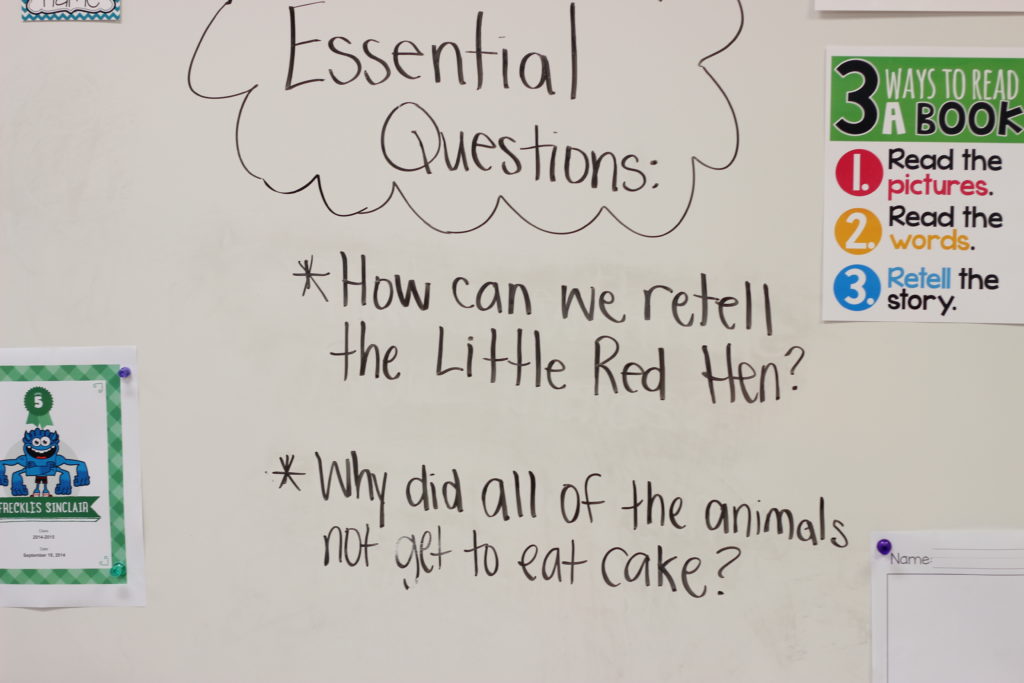 name
Essential
Questions:
*How can we retell
the Little Red Hen?
*Why did all of the animals
not get to eat cake?
3 WAYS TO READ
A BOOK
1. Read the
pictures.
2. Read the
words.
3. Retell the
story.
5
FRECKLES SINCLAIR
Class
2014-2015
Date
September 19, 2014
Name: